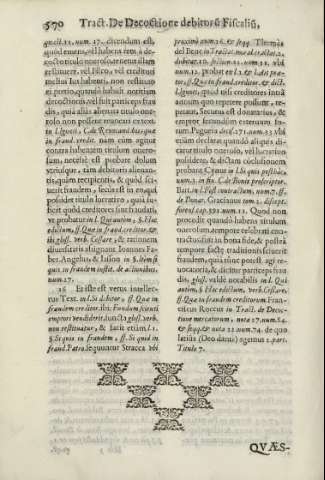 570 Tract. De Decoctione debitorũ Fiscaliũ,
quest.11. num.17. dicendum est,
quòd emens, vel habens rem à de-
coctotitulo oneroso tenetur illam
restituere, vel fisco, vel creditori
melioti, quando habuit notitiam
decoctionis, vel fuit particeps frau
dis, quia aliàs alterius titulo one-
roso non possent reuocari ex text.
in l.ignoti, C. de Reuocandis his, quæ
in fraud. credit. nam cùm agitur
contra habentem titulum onero-
sum, necesse est probare dolum
vtriusque, tàm debitoris alienan-
tis, quàm recipientis, & quòd sci-
uerit fraudem, secùs est in eo, qui
possidet titulo lucratiuo, quia su-
ficit quòd creditores sint fraudati,
vt probatur in l. Qui autem, §. Hoc
edictum, ff. Quæ in fraud. creditor. &
ibi gloss. verb. Cessare, & rationem
diuersitatis assignant Ioannes Fa-
ber, Angelus, & Iason in §. Item si
quis in fraudem instit. de actionibus.
num.27.
18 Et iste est verus intellec-
tus Text. in l. Si debitor, ff. Quæ in
fraudem creditor. ibi: Fundum scienti
emptori vendiderit, iuncta glos. verb.
non restituatur, & facit etiam l. 1.
§. Si quis in fraudem, ff. Si quid in
fraud. Patro. sequuntur Stracca vbi
proximè num.26. & seqq. Thomàs
del Bene in Tractat. moral. tractat. 2.
dubitat. 10. section. 12. num. 11. vbi
num.12. probat ex l. 2. & l. Ait præ-
tor, ff. Quæ in fraud. creditor. & dict.
l. Ignoti, quòd titius creditor intrà
annum quo repetere possunt, re-
putant, securus non detinetur, &
emptor secundùm externum fo-
rum. Peguera decis. 171. num. 23. vbi
etiam declarat quandò aliquis di-
catur titulo oneroso, vel lucratiuo
possidere, & dictam conclusionem
probant, Cynus in l. Si quis posteà,
num. 2. in fin. C. de Bonis proscriptor.
Bart. in l. Post contractum, num. 7. ff.
de Donat. Gracianus tom. 2. discept.
forens. cap. 392. num. 12. Quod non
procedit quando habens onerosã
causam, & de tempore celebrati con-
tractus fuit in bona fide, & posteà
tempore factæ traditionis sciuerit
fraudem, quia tunc potest agi re-
uocatoria, & dicitur particeps frau
dis, gloss. valdè notabilis in l. Qui
autem, §. Hoc edictum, verb. Cessare,
ff. Quæ in fraudem creditorum. Fran-
ciscus Roccus in Tract. de Decoc-
tione mercatorum, nota 17. num. 54.
& seqq. & nota 22. num. 74. de quo
latiùs (Deo dante) agemus 2. part.
Titulo 7.
QVÆS-